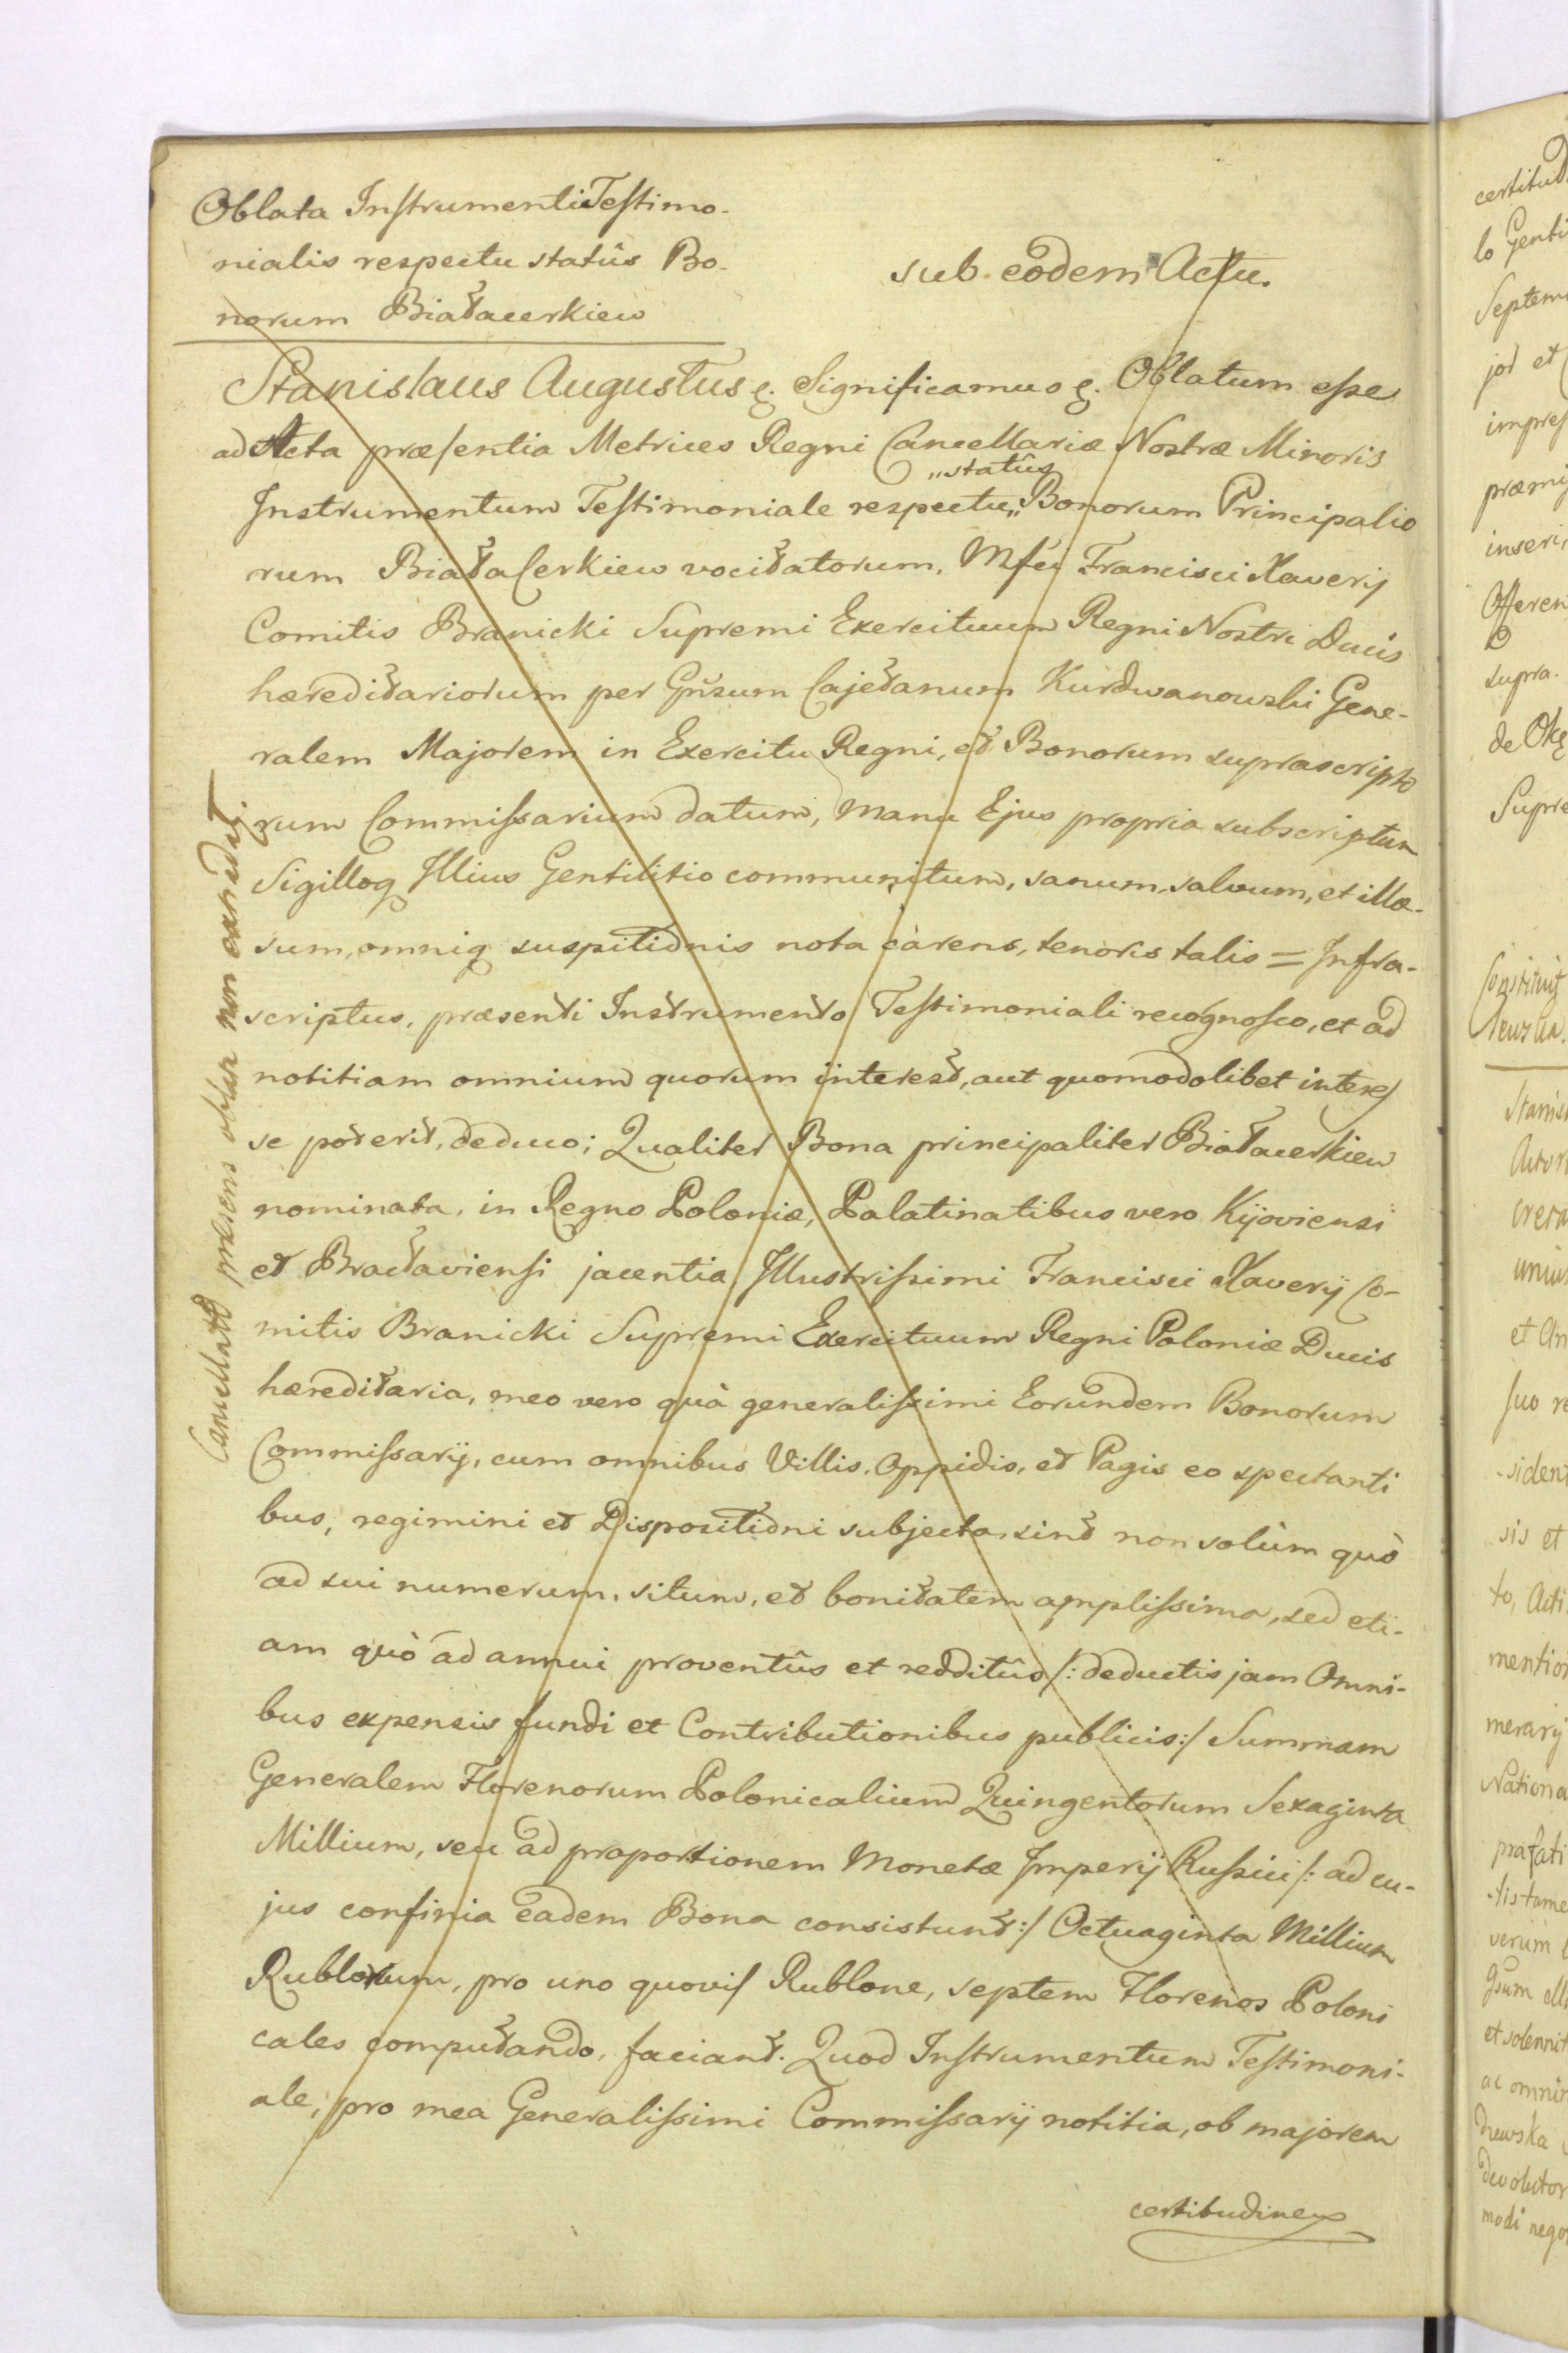 Oblata Instrumenti Testimo-
nialis respectu statûs Bo-
norum Białacerkiew
sub eodem Actu.
Stanislaus Augustus &. Significamus &. Oblatum esse
ad Acta præsentia Metrices Regni Cancellariæ Nostræ Minoris
„statûs
Instrumentum Testimoniale respectu„ Bonorum Principalio
rum BiałaCerkiew vocitatorum, Mfci Francisci Xaverij
Comitis Branicki Supremi Exercituum Regni Nostri Ducis
hæreditariorum per Gñsum Cajetanum Kurdwanowski Gene-
ralem Majorem in Exercitu Regni, et Bonorum suprascripto
rum Commissarium datum, manu Ejus propria subscriptum
Sigilloq Illius Gentilitio communitum, sanum, salvum, et illæ-
sum, omniq suspitionis nota carens, tenoris talis = Infra-
scriptus, præsenti Instrumento Testimoniali recognosco, et ad
notitiam omnium quorum interest, aut quomodolibet interes
se poterit, deduco; Qualiter Bona principaliter Białacerkiew
nominata, in Regno Poloniæ, Palatinatibus vero Kijoviensi
et Bracłaviensi jacentia, Illustrissimi Francisci Xaverij Co-
mitis Branicki Supremi Exercituum Regni Poloniæ Ducis
hæreditaria, meo vero quà generalissimi Eorundem Bonorum
Commissarij, cum omnibus Villis, Oppidis, et Pagis eo spectanti
bus, regimini et Dispositioni subjecta, sint non solùm quò
ad sui numerum, situm, et bonitatem amplissima, sed eti-
am quò ad annui proventûs et redditûs /: deductis jam Omni-
bus expensis fundi et Contributionibus publicis :/ Summam
Generalem Florenorum Polonicalium Quingentorum Sexaginta
Millium, seu ad proportionem Monetæ Imperij Russici /: ad cu-
jus confinia eadem Bona consistunt :/ Octuaginta Millium
Rublorum, pro uno quovis Rublone, septem Florenos Poloni
cales computando, faciant. Quod Instrumentum Testimoni-
ale, pro mea Generalissimi Commissarij notitia, ob majorem
certitudinem
Cancellata præsens oblata non extradit
lo Genti
Septem
jor et
præmi
inseri,
Offeren
supra.
Supre
Constituit
et An
suo re
-sident
sis et
to, Acti
mention
merarij
Nationa
præfati
verum
ac omni
modi nego